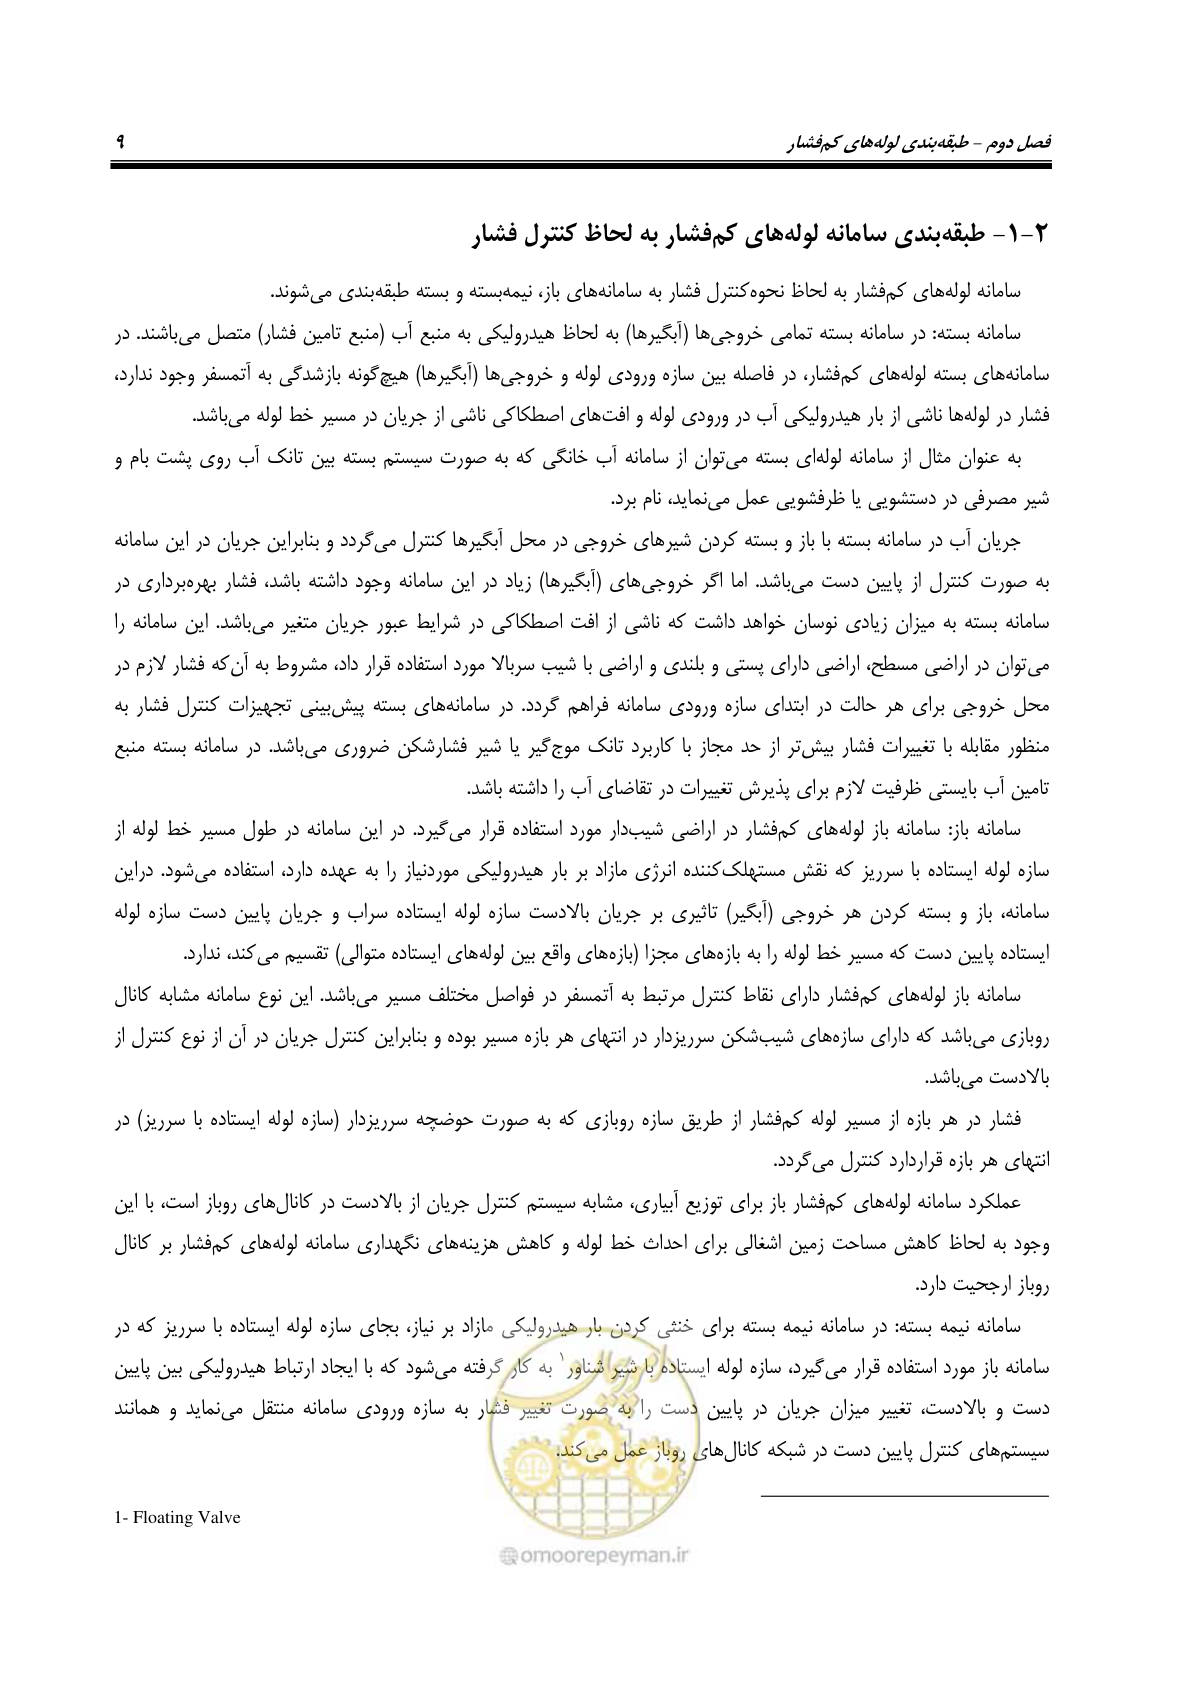 فصل دوم – طبقه‌بندی لوله‌های کم‌فشار
۹
۲-۱- طبقه‌بندی سامانه لوله‌های کم‌فشار به لحاظ کنترل فشار
سامانه لوله‌های کم‌فشار به لحاظ نحوه‌کنترل فشار به سامانه‌های باز، نیمه‌بسته و بسته طبقه‌بندی می‌شوند.
سامانه بسته: در سامانه بسته تمامی خروجی‌ها (آبگیرها) به لحاظ هیدرولیکی به منبع آب (منبع تامین فشار) متصل می‌باشند. در
سامانه‌های بسته لوله‌های کم‌فشار، در فاصله بین سازه ورودی لوله و خروجی‌ها (آبگیرها) هیچ‌گونه بازشدگی به آتمسفر وجود ندارد،
فشار در لوله‌ها ناشی از بار هیدرولیکی آب در ورودی لوله و افت‌های اصطکاکی ناشی از جریان در مسیر خط لوله می‌باشد.
به عنوان مثال از سامانه لوله‌ای بسته می‌توان از سامانه آب خانگی که به صورت سیستم بسته بین تانک آب روی پشت بام و
شیر مصرفی در دستشویی یا ظرفشویی عمل می‌نماید، نام برد.
جریان آب در سامانه بسته با باز و بسته کردن شیرهای خروجی در محل آبگیرها کنترل می‌گردد و بنابراین جریان در این سامانه
به صورت کنترل از پایین دست می‌باشد. اما اگر خروجی‌های (آبگیرها) زیاد در این سامانه وجود داشته باشد، فشار بهره‌برداری در
سامانه بسته به میزان زیادی نوسان خواهد داشت که ناشی از افت اصطکاکی در شرایط عبور جریان متغیر می‌باشد. این سامانه را
می‌توان در اراضی مسطح، اراضی دارای پستی و بلندی و اراضی با شیب سربالا مورد استفاده قرار داد، مشروط به آن‌که فشار لازم در
محل خروجی برای هر حالت در ابتدای سازه ورودی سامانه فراهم گردد. در سامانه‌های بسته پیش‌بینی تجهیزات کنترل فشار به
منظور مقابله با تغییرات فشار بیش‌تر از حد مجاز با کاربرد تانک موج‌گیر یا شیر فشارشکن ضروری می‌باشد. در سامانه بسته منبع
تامین آب بایستی ظرفیت لازم برای پذیرش تغییرات در تقاضای آب را داشته باشد.
سامانه باز: سامانه باز لوله‌های کم‌فشار در اراضی شیب‌دار مورد استفاده قرار می‌گیرد. در این سامانه در طول مسیر خط لوله از
سازه لوله ایستاده با سرریز که نقش مستهلک‌کننده انرژی مازاد بر بار هیدرولیکی موردنیاز را به عهده دارد، استفاده می‌شود. دراین
سامانه، باز و بسته کردن هر خروجی (آبگیر) تاثیری بر جریان بالادست سازه لوله ایستاده سراب و جریان پایین دست سازه لوله
ایستاده پایین دست که مسیر خط لوله را به بازه‌های مجزا (بازه‌های واقع بین لوله‌های ایستاده متوالی) تقسیم می‌کند، ندارد.
سامانه باز لوله‌های کم‌فشار دارای نقاط کنترل مرتبط به آتمسفر در فواصل مختلف مسیر می‌باشد. این نوع سامانه مشابه کانال
روبازی می‌باشد که دارای سازه‌های شیب‌شکن سرریزدار در انتهای هر بازه مسیر بوده و بنابراین کنترل جریان در آن از نوع کنترل از
بالادست می‌باشد.
فشار در هر بازه از مسیر لوله کم‌فشار از طریق سازه روبازی که به صورت حوضچه سرریزدار (سازه لوله ایستاده با سرریز) در
انتهای هر بازه قراردارد کنترل می‌گردد.
عملکرد سامانه لوله‌های کم‌فشار باز برای توزیع آبیاری، مشابه سیستم کنترل جریان از بالادست در کانال‌های روباز است، با این
وجود به لحاظ کاهش مساحت زمین اشغالی برای احداث خط لوله و کاهش هزینه‌های نگهداری سامانه لوله‌های کم‌فشار بر کانال
روباز ارجحیت دارد.
سامانه نیمه بسته: در سامانه نیمه بسته برای خنثی کردن بار هیدرولیکی مازاد بر نیاز، بجای سازه لوله ایستاده با سرریز که در
سامانه باز مورد استفاده قرار می‌گیرد، سازه لوله ایستاده با شیر شناور۱ به کار گرفته می‌شود که با ایجاد ارتباط هیدرولیکی بین پایین
دست و بالادست، تغییر میزان جریان در پایین دست را به صورت تغییر فشار به سازه ورودی سامانه منتقل می‌نماید و همانند
سیستم‌های کنترل پایین دست در شبکه کانال‌های روباز عمل می‌کند.
1- Floating Valve
omoorepeyman.ir